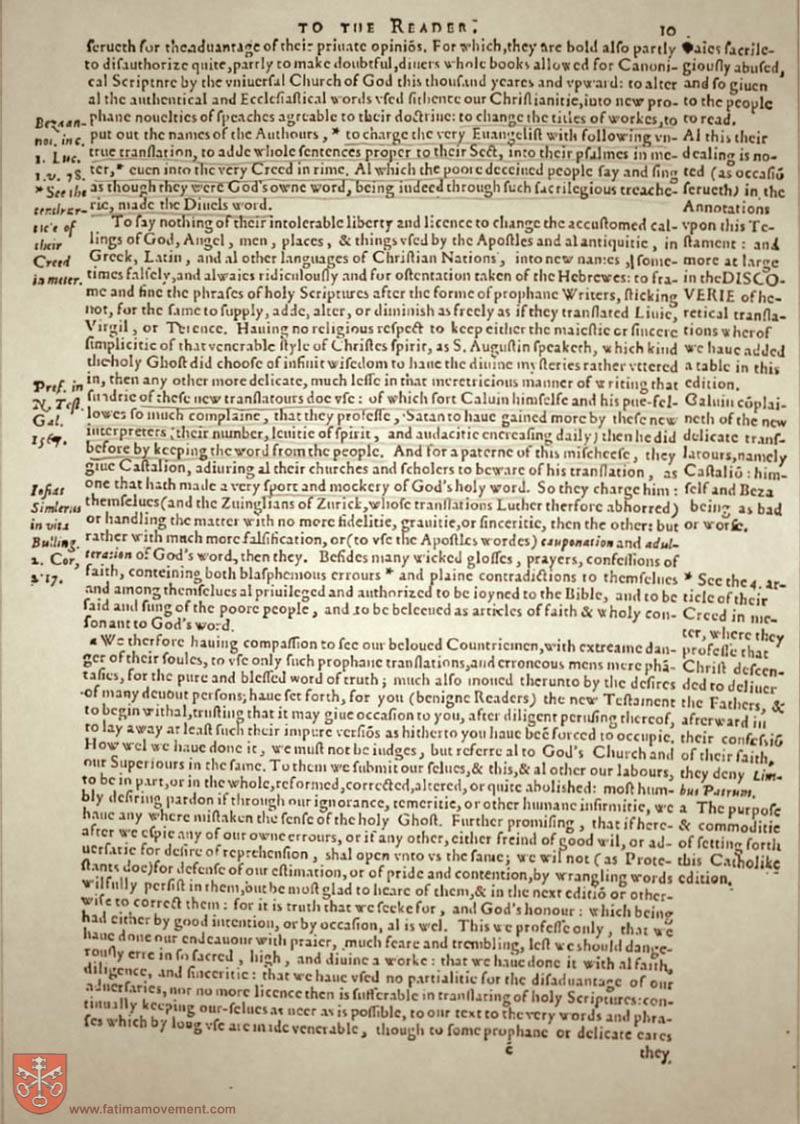 TO THE READER.
10
ſerueth for the aduantage of their priuate opiniōs. For which, they are bold alſo partly
to diſauthorize quite, partly to make doubtful, diuers whole books allowed for Canoni-
cal Scripture by the vniuerſal Church of God this thouſand yeares and vpward: to alter
al the authentical and Eccleſiaſtical words vſed ſithence our Chriſtianitie, into new pro-
phane nouelties of ſpeaches agreable to their doctrine: to change the titles of workes, to
put out the names of the Authours, * to charge the very Euangeliſt with following vn-
true tranſlation, to adde whole ſentences proper to their Sect, into their pſalmes in me-
ter, * euen into the very Creed in rime. Al which the poore deceiued people ſay and ſing
as though they were God's owne word, being indeed through ſuch ſacrilegious treache-
rie, made the Diuels word.
To ſay nothing of their intolerable liberty and licence to change the accuſtomed cal-
lings of God, Angel, men, places, & things vſed by the Apoſtles and al antiquitie, in
Greek, Latin, and al other languages of Chriſtian Nations, into new names, ſome-
times falſely, and alwaies ridiculouſly and for oſtentation taken of the Hebrewes: to fra-
me and fine the phraſes of holy Scriptures after the forme of prophane Writers, ſticking
not, for the ſame to ſupply, adde, alter, or diminiſh as freely as if they tranſlated Liuie,
Virgil, or Terence. Hauing no religious reſpect to keep either the maieſtie or ſincere
ſimplicitie of that venerable ſtyle of Chriſtes ſpirit, as S. Auguſtin ſpeaketh, which kind
the holy Ghoſt did chooſe of infinit wiſedom to haue the diuine myſteries rather vttered
in, then any other more delicate, much leſſe in that meretricious manner of writing that
ſundrie of theſe new tranſlatours doe vſe: of which ſort Caluin himſelfe and his pue-fel-
lowes ſo much complaine, that they profeſſe, Satan to haue gained more by theſe new
interpreters (their number, leuitie of ſpirit, and audacitie encreaſing daily) then he did
before by keeping the word from the people. And for a paterne of this miſcheefe, they
giue Caſtalion, adiuring al their churches and ſcholers to beware of his tranſlation, as
one that hath made a very ſport and mockery of God's holy word. So they charge him:
themſelues (and the Zuinglians of Zurick, whoſe tranſlations Luther therfore abhorred)
or handling the matter with no more fidelitie, grauitie, or ſinceritie, then the other: but
rather with much more falſification, or (to vſe the Apoſtles wordes) cauponation and adul-
teration of God's word, then they. Beſides many wicked gloſſes, prayers, confeſſions of
faith, conteining both blaſphemous errours * and plaine contradictions to themſelues
and among themſelues al priuileged and authorized to be ioyned to the Bible, and to be
ſaid and ſung of the poore people, and to be beleeued as articles of faith & wholy con-
ſonant to God's word.
a We therfore hauing compaſſion to ſee our beloued Countriemen, with extreame dan-
ger of their ſoules, to vſe only ſuch prophane tranſlations, and erroneous mens mere phā-
taſies, for the pure and bleſſed word of truth; much alſo moued therunto by the deſires
of many deuout perſons; haue ſet forth, for you (benigne Readers) the new Teſtament
to begin withal, truſting that it may giue occaſion to you, after diligent peruſing thereof,
to lay away at leaſt ſuch their impure verſiōs as hitherto you haue beē forced to occupie.
How wel we haue done it, we muſt not be iudges, but referre al to God's Church and
our Superiours in the ſame. To them we ſubmit our ſelues, & this, & al other our labours,
to be in part, or in the whole, reformed, corrected, altered, or quite aboliſhed: moſt hum-
bly deſiring pardon if through our ignorance, temeritie, or other humane infirmitie, we
haue any where miſtaken the ſenſe of the holy Ghoſt. Further promiſing, that if here-
after we eſpie any of our owne errours, or if any other, either freind of good wil, or ad-
uerſarie for deſire of reprehenſion, ſhal open vnto vs the ſame; we wil not (as Prote-
ſtants doe) for defenſe of our eſtimation, or of pride and contention, by wrangling words
wilfully perſiſt in them, but be moſt glad to heare of them, & in the next editiō or other-
wiſe to correct them: for it is truth that we ſeeke for, and God's honour: which being
had either by good intention, or by occaſion, al is wel. This we profeſſe only, that we
haue done our endeauour with praier, much feare and trembling, leſt we ſhould dange-
rouſly erre in ſo ſacred, high, and diuine a worke: that we haue done it with al faith,
diligence, and ſinceritie: that we haue vſed no partialitie for the diſaduantage of our
aduerſaries, nor no more licence then is ſufferable in tranſlating of holy Scriptures: con-
tinually keeping our-ſelues as neer as is poſſible, to our text to the very words and phra-
ſes which by long vſe are made venerable, though to ſome prophane or delicate eares
they
Beza an-
not. in c.
1. Luc.
1. v. 78.
* See the
tenth ar-
ticle of
their
Creed
in meter.
Pref. in
N. Teſt.
Gal.
1567.
Ioſias
Simlerus
in vita
Bulling.
2. Cor,
2. 17.
ſacrile-
giouſly abuſed,
and ſo giuen
to the people
to read.
Al this their
dealing is no-
ted (as occaſiō
ſerueth) in the
Annotations
vpon this Te-
ſtament: and
more at large
in the DISCO-
VERIE of he-
retical tranſla-
tions wherof
we haue added
a table in this
edition.
Caluin cōplai-
neth of the new
delicate tranſ-
latours, namely
Caſtaliō: him-
ſelf and Beza
being as bad
or worſe.
* See the 4. ar-
ticle of their
Creed in me-
ter, where they
profeſſe that
Chriſt deſcen-
ded to deliuer
the Fathers, &
afterward in
their confeſſiō
of their faith,
they deny Lim-
bus Patrum.
a The purpoſe
& commoditie
of ſetting forth
this Catholike
edition.
www.fatimamovement.com